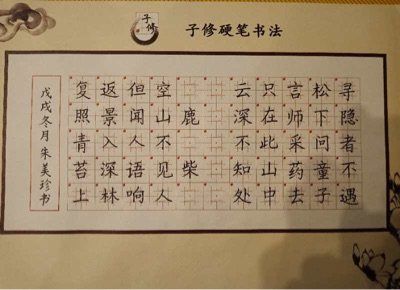 子修
子修硬笔书法
寻隐者不遇
松下问童子
言师采药去
只在此山中
云深不知处
鹿柴
空山不见人
但闻人语响
返景入深林
复照青苔上
戊戌冬月朱美珍书